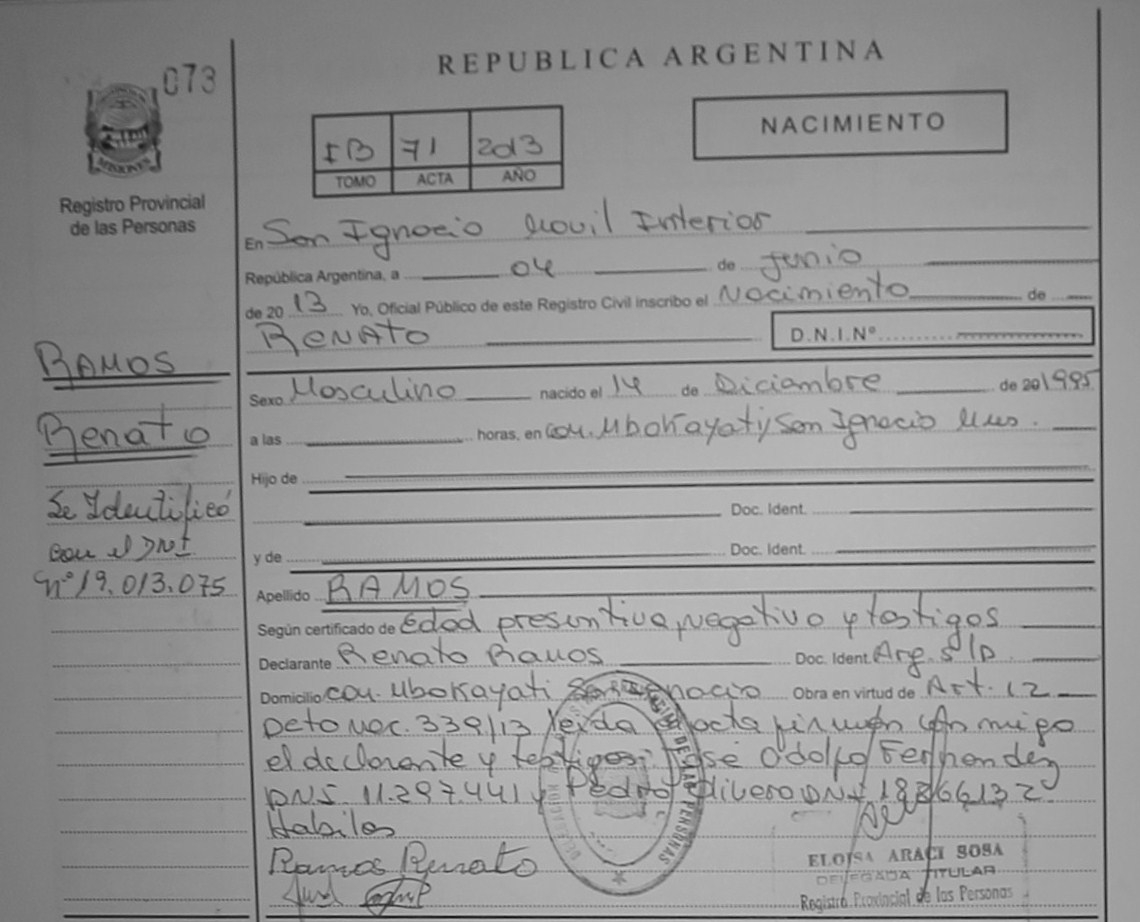 073
REPUBLICA ARGENTINA
MISIONES
Registro Provincial
de las Personas
IB 71 2013
TOMO ACTA AÑO
NACIMIENTO
En San Ignacio Movil Interior
República Argentina, a 04 de Junio
de 2013 Yo, Oficial Público de este Registro Civil inscribo el Nacimiento de
RENATO D.N.I.Nº
RAMOS
Renato
Se Identificó
con el DNI
Nº 19.013.075
Sexo Masculino nacido el 14 de Diciembre de 20 1995
a las horas, en Com. Mbokayati, San Ignacio Mnes.
Hijo de
Doc. Ident.
y de Doc. Ident.
Apellido RAMOS
Según certificado de Edad presuntiva, negativo y testigos
Declarante Renato Ramos Doc. Ident. Arg. S/D
Domicilio com. Mbokayati San Ignacio Obra en virtud de Art. 12
Deto Nac. 339/13 leida el acta firman conmigo
el declarante y testigos: José Odolfo Fernandez
DNI. 11.297.441 y Pedro DNI 18866132.
Habiles
Ramos Renato
ELOISA ARACI SOSA
DELEGADA TITULAR
Registro Provincial de las Personas